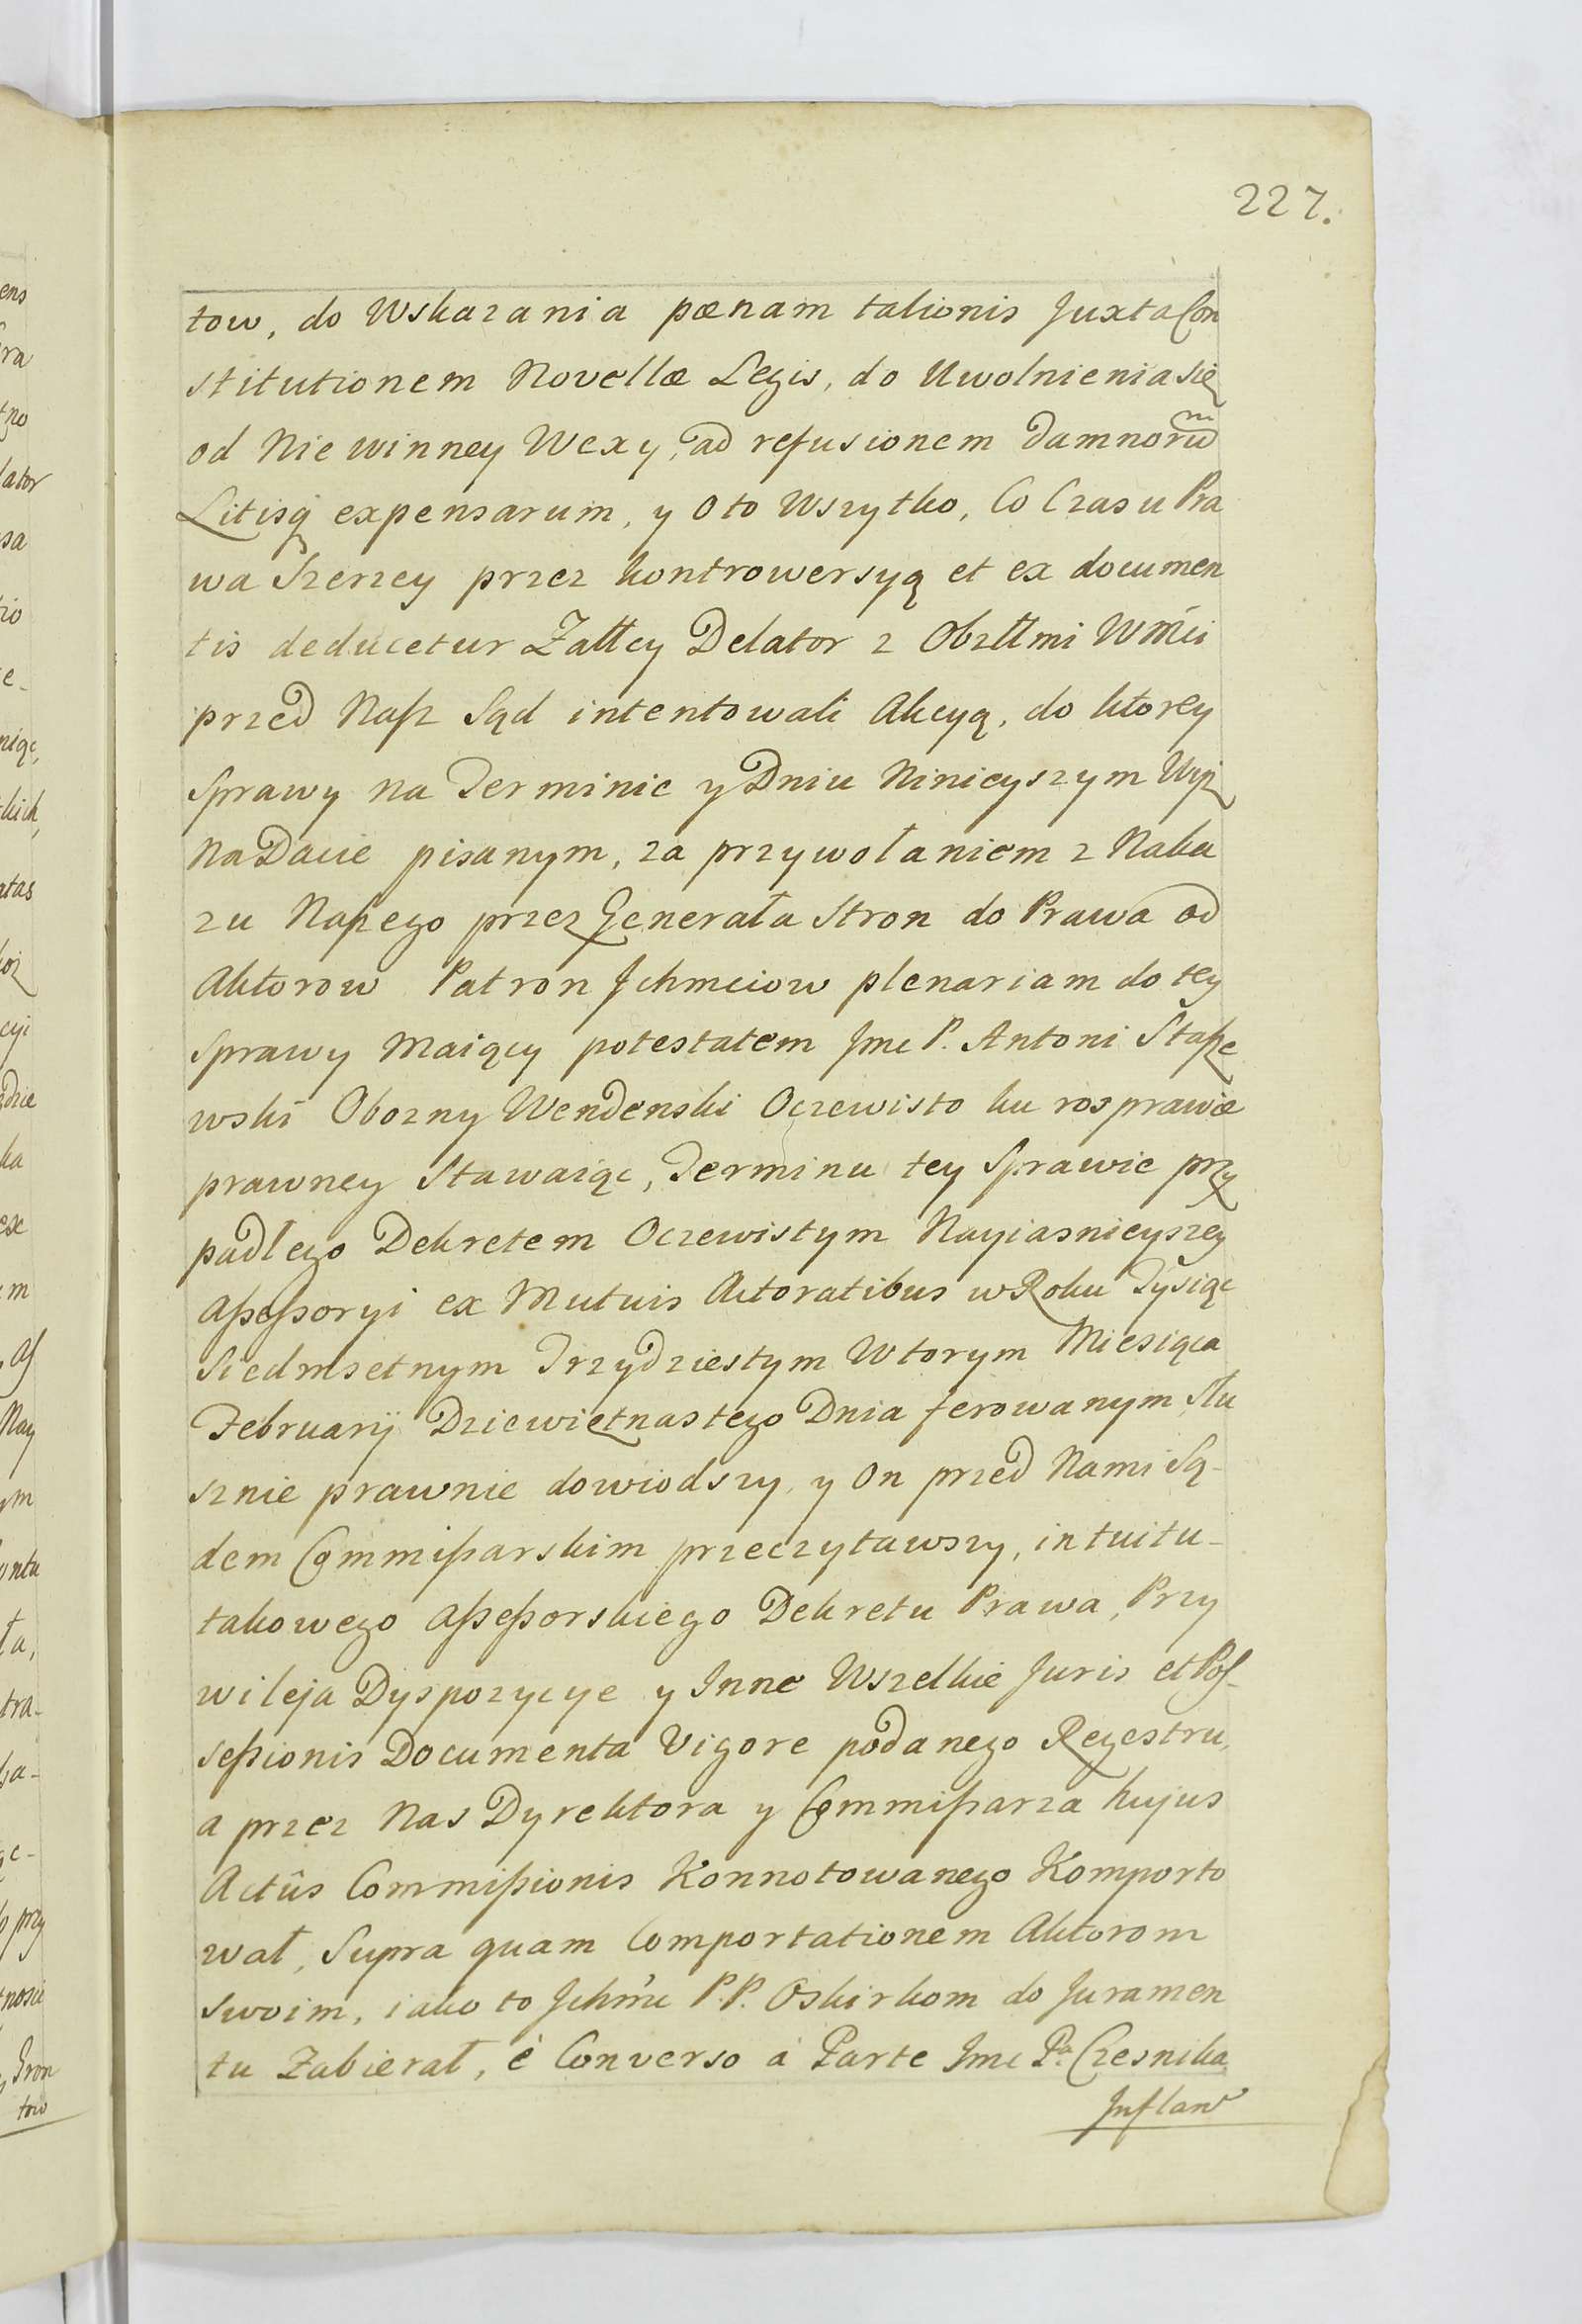 227.
tow, do Wskazania pœnam talionis Juxta Con
stitutionem Novellæ Legis, do Uwolnienia się
od Niewinney Wexy, ad refusionem Damnorum
Litisq expensarum, y o to Wszytko, Co Czasu Pra
wa Szerzey przez kontrowersyą et ex documen
tis deducetur Załłcy Delator z Obzłłmi Wmci
przed Nasz Sąd intentowali Akcyą, do ktorey
Sprawy na Terminie y Dniu Ninieyszym Wyż
Na Dacie pisanym, za przywołaniem z Naka
zu Naszego przez Generała Stron do Prawa od
Aktorow Patron Jchmciow plenariam do tey
Sprawy Maiący potestatem Jmć P. Antoni Stasze
wski Obozny Wendenski Oczewisto ku rosprawie
prawney Stawaiąc, Terminu tey Sprawie przy
padłego Dekretem Oczewistym Nayiasnieyszey
Aszeszoryi ex Mutuis Actoratibus w Roku Tysiąc
Siedmsetnym Trzydziestym Wtorym Miesiąca
Februarij Dziewiętnastego Dnia ferowanym Słu
sznie prawnie dowiodszy, y on przed Nami Są-
dem Commiszarskim przeczytawszy, intuitu-
takowego Aszeszorskiego Dekretu Prawa, Przy
wileja Dyspozycye y Inne Wszelkie Juris et Pos-
seszionis Documenta Vigore podanego Regestru,
a przez Nas Dyrektora y Commiszarza hujus
Actûs Commiszionis Konnotowanego Komporto
wał, Supra quam Comportationem Aktorom
swoim, iako to Jchmć P.P. Oskirkom do Juramen
tu Zabierał, é Converso á Parte Jmć Pa Czesnika
Inflanˢ